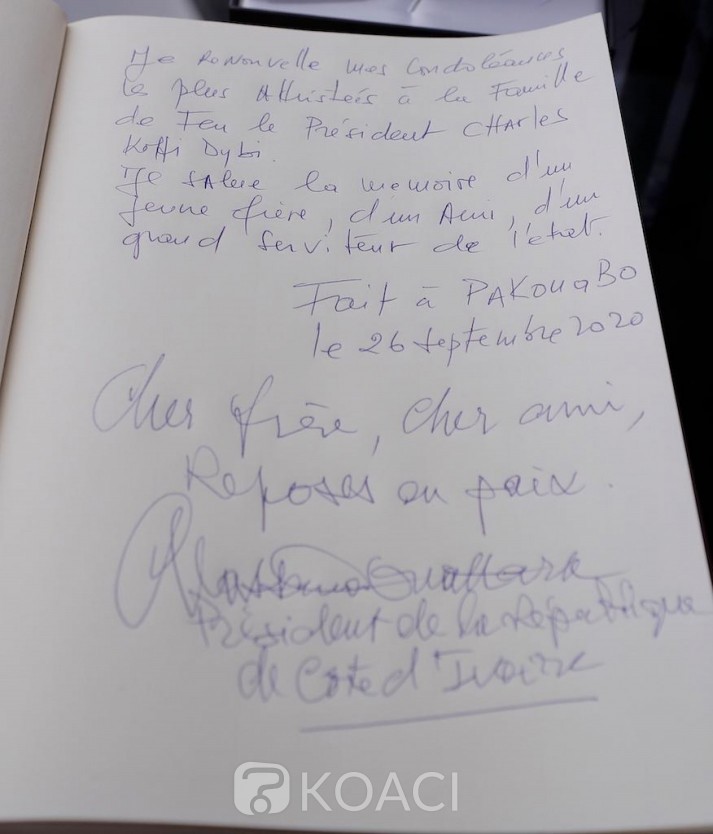 Je Renouvelle mes Condoléances
le plus Attristées à la Famille
de Feu le Président CHArles
Koffi Dybi.
Je salue la memoire d'un
jeune frère, d'un Ami, d'un
grand serviteur de l'état.
Fait à PAKOUABO
le 26 septembre 2020
Cher frère, cher ami,
Reposes en paix.
Alassane Ouattara
Président de la République
de Côte d'Ivoire
KOACI